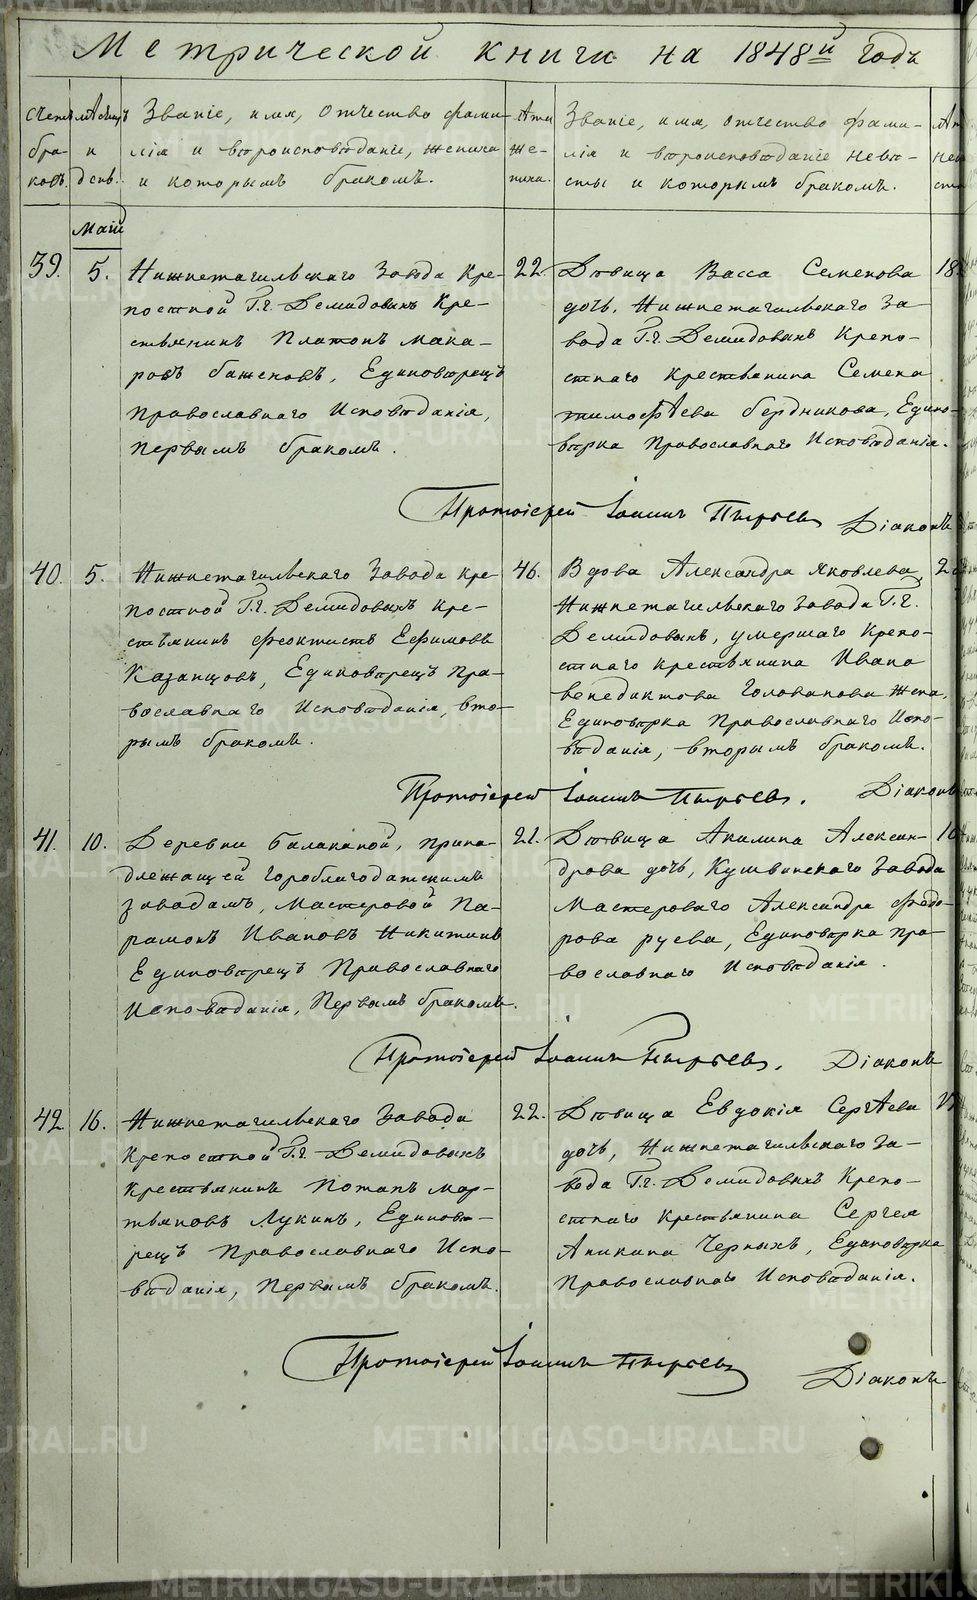 Метрической книги на 1848й годъ
Счетъ браковъ.
Мѣсяцъ и день.
Званіе, имя, отчество фами-
лія и вѣроисповѣданіе, жениха
и которымъ бракомъ.
Лѣта
же-
ниха.
Званіе, имя, отчество фами-
лія и вѣроисповѣданіе невѣ-
сты и которымъ бракомъ.
Маій
39.
5.
Нижнетагильскаго Завода Кре-
постной Г.г. Демидовыхъ Кре-
стьянинъ Платонъ Мака-
ровъ Баженовъ, Единовѣрецъ
Православнаго Исповѣданія,
Первымъ бракомъ.
22
Дѣвица Васса Семенова
дочь, Нижнетагильскаго За-
вода Г.г. Демидовыхъ Крепо-
стнаго Крестьянина Семена
Тимофѣева Бердникова, Едино-
вѣрка Православнаго Исповѣданія.
18
Протоіерей Іоаннъ Пырьевъ
Діаконъ
40.
5.
Нижнетагильскаго Завода Кре-
постной Г.г. Демидовыхъ Кре-
стьянинъ Феоктистъ Ефимовъ
Казанцовъ, Единовѣрецъ Пра-
вославнаго Исповѣданія, вто-
рымъ бракомъ.
46.
Вдова Александра Яковлева,
Нижнетагильскаго Завода Г.г.
Демидовыхъ, умершаго Крепо-
стнаго крестьянина Ивана
Венедиктова Голованова жена,
Единовѣрка Православнаго Испо-
вѣданія, вторымъ бракомъ.
Протоіерей Іоаннъ Пырьевъ.
Діаконъ
41.
10.
Деревни Балакиной, прина-
длежащей Гороблагодатскимъ
заводамъ, Мастеровой Па-
рамонъ Ивановъ Никитинъ
Единовѣрецъ Православнаго
Исповѣданія, Первымъ бракомъ.
21.
Дѣвица Акилина Алексан-
дрова дочь, Кушвинскаго Завода
Мастероваго Александра Федо-
рова Руева, Единовѣрка Пра-
вославнаго Исповѣданія.
Протоіерей Іоаннъ Пырьевъ.
Діаконъ
42.
16.
Нижнетагильскаго Завода
Крепостной Г.г. Демидовыхъ
Крестьянинъ Потапъ Мар-
тьяновъ Лукинъ, Единовѣ-
рецъ Православнаго Испо-
вѣданія, Первымъ бракомъ.
22.
Дѣвица Евдокія Сергѣева
дочь, Нижнетагильскаго За-
вода Г.г. Демидовыхъ Крепо-
стнаго Крестьянина Сергея
Аникина Черныхъ, Единовѣрка
Православнаго Исповѣданія.
Протоіерей Іоаннъ Пырьевъ
Діаконъ
METRIKI.GASO-URAL.RU